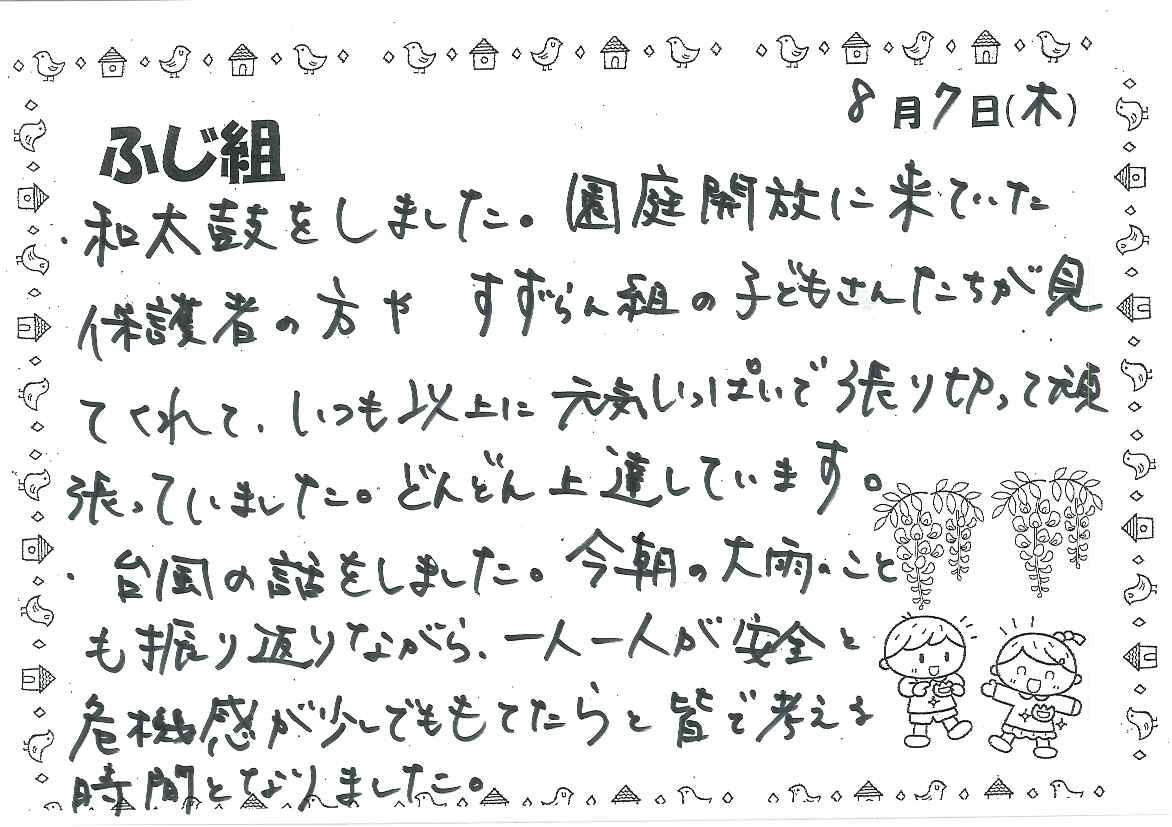 8月7日(木)
ふじ組
・和太鼓をしました。園庭開放に来ていた
保護者の方や すずらん組の子どもさんたちが見
てくれて、いつも以上に元気いっぱいで張り切って頑
張っていました。どんどん上達しています。
・台風の話をしました。今朝の大雨のこと
も振り返りながら、一人一人が安全と
危機感が少しでももてたらと皆で考える
時間となりました。